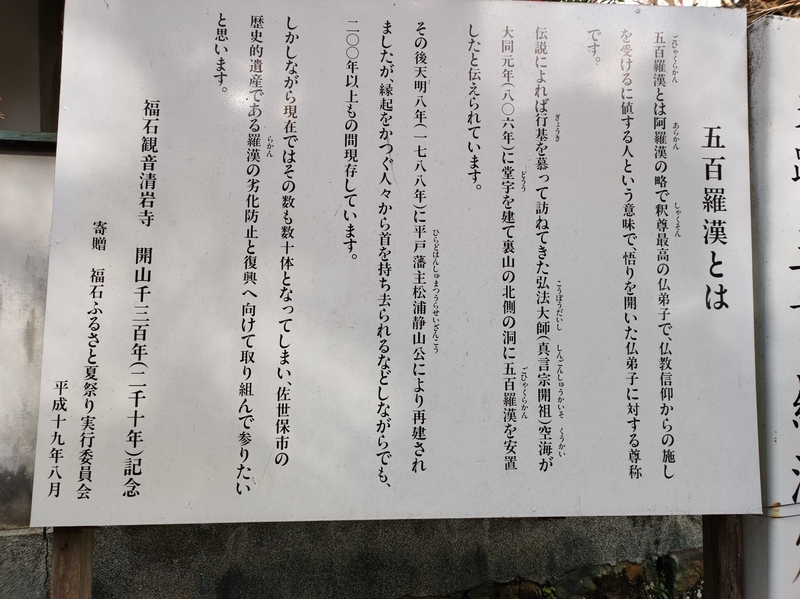 五百羅漢とは
五百羅漢とは阿羅漢の略で釈尊最高の仏弟子で、仏教信仰からの施し
を受けるに値する人という意味で、悟りを開いた仏弟子に対する尊称
です。
伝説によれば行基を慕って訪ねてきた弘法大師(真言宗開祖)空海が
大同元年(八〇六年)に堂宇を建て裏山の北側の洞に五百羅漢を安置
したと伝えられています。
その後天明八年(一七八八年)に平戸藩主松浦静山公により再建され
ましたが、縁起をかつぐ人々から首を持ち去られるなどしながらでも、
二〇〇年以上もの間現存しています。
しかしながら現在ではその数も数十体となってしまい、佐世保市の
歴史的遺産である羅漢の劣化防止と復興へ向けて取り組んで参りたい
と思います。
福石観音清岩寺 開山千三百年(二千十年)記念
寄贈 福石ふるさと夏祭り実行委員会
平成十九年八月